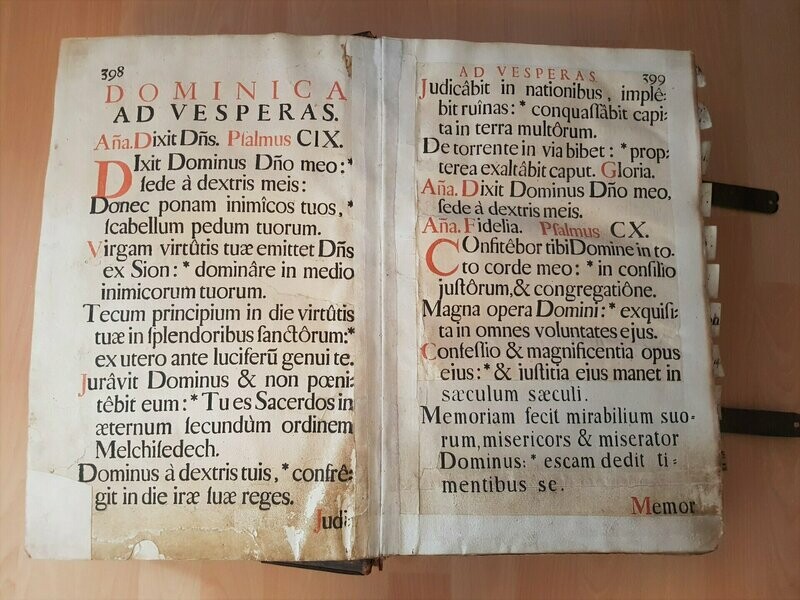 398
DOMINICA
AD VESPERAS.
Aña. Dixit Dñs. Pſalmus CIX.
DIxit Dominus Dño meo: *
ſede à dextris meis:
Donec ponam inimîcos tuos, *
ſcabellum pedum tuorum.
Virgam virtûtis tuæ emittet Dñs
ex Sion: * dominâre in medio
inimicorum tuorum.
Tecum principium in die virtûtis
tuæ in ſplendoribus ſanctôrum: *
ex utero ante luciferũ genui te.
Jurâvit Dominus & non pœni:
têbit eum: * Tu es Sacerdos in
æternum ſecundùm ordinem
Melchiſedech.
Dominus à dextris tuis, * confrê:
git in die iræ ſuæ reges.
Judi:
AD VESPERAS.
399
Judicâbit in nationibus, implê:
bit ruînas: * conquaſſàbit capi:
ta in terra multôrum.
De torrente in via bibet: * prop:
terea exaltâbit caput. Gloria.
Aña. Dixit Dominus Dño meo,
ſede à dextris meis.
Aña. Fidelia. Pſalmus CX.
COnfitêbor tibi Domine in to:
to corde meo: * in conſilio
juſtôrum, & congregatiône.
Magna opera Domini: * exquiſi:
ta in omnes voluntates ejus.
Confeſſio & magnificentia opus
ejus: * & iuſtitia eius manet in
sæculum sæculi.
Memoriam fecit mirabilium suo:
rum, misericors & miserator
Dominus: * escam dedit ti:
mentibus se.
Memor